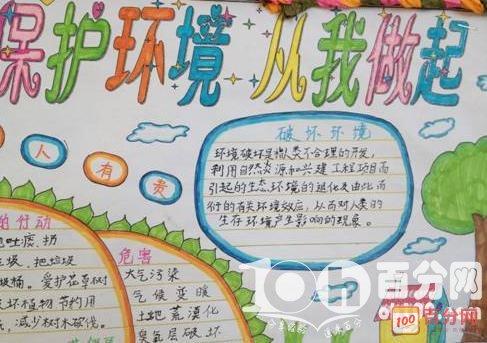 保护环境 从我做起
人有责
破坏环境
环境破坏是指人类不合理的开发,
利用自然资源和兴建工程项目而
引起的生态环境的退化及由此而
衍的有关环境效应,从而对人类的
生存环境产生影响的现象。
的行动
地吐痰、扔
垃圾、把垃圾
圾桶。爱护花草树
坏植物节约用
减少树木砍伐。
危害
大气污染
气候变暖
土地荒漠化
臭氧层破坏
百分网
100 百分网